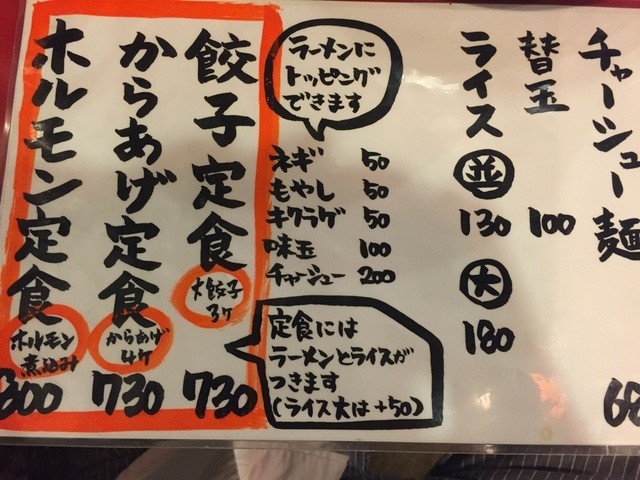 チャーシュー麺
替玉 100
ライス 並 130
大 180
ラーメンに
トッピング
できます
ネギ 50
もやし 50
キクラゲ 50
味玉 100
チャーシュー 200
定食には
ラーメンとライスが
つきます
(ライス大は+50)
餃子定食
大餃子
3ヶ
730
からあげ定食
からあげ
4ヶ
730
ホルモン定食
ホルモン
煮込み